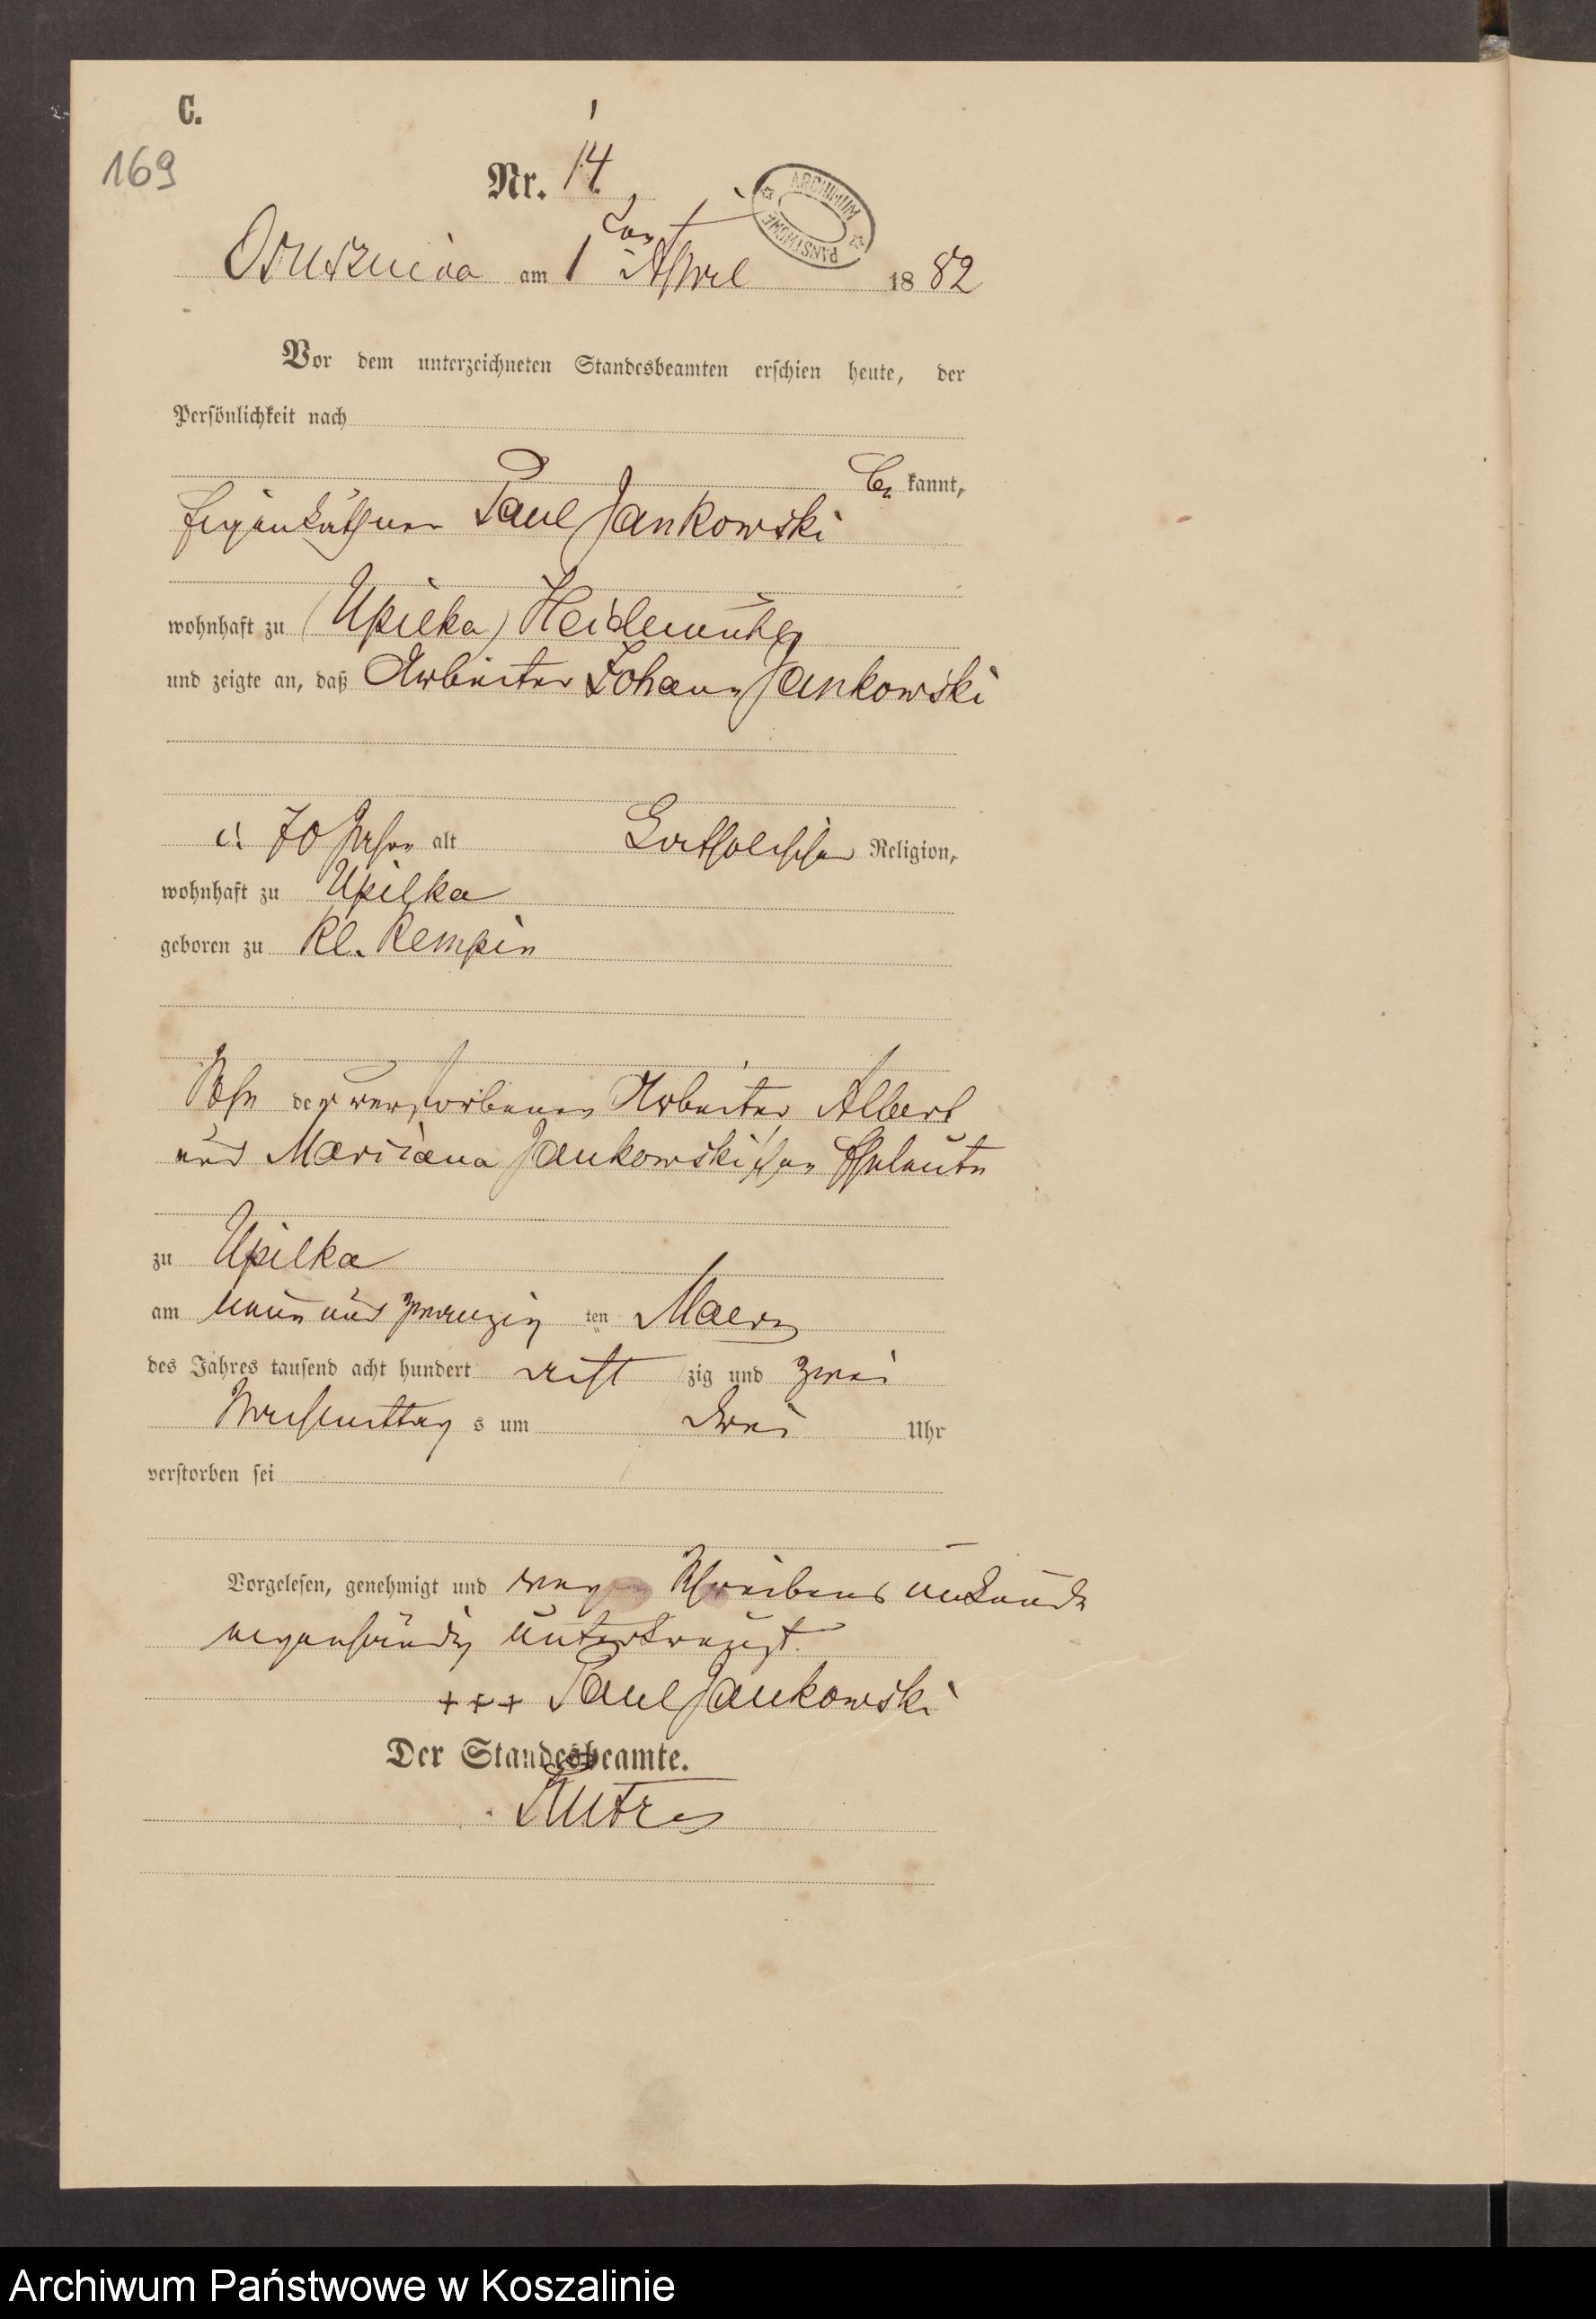 C.
169
Nr. 14
ARCHIWUM PAŃSTWOWE
Osusznica am 1 ten April 1882
Vor dem unterzeichneten Standesbeamten erschien heute, der
Persönlichkeit nach
be kannt,
Eigenkäthner Paul Jankowski
wohnhaft zu (Upilka) Heidemühl
und zeigte an, daß Arbeiter Johann Jankowski
70 Jahr alt Katholischer Religion,
wohnhaft zu Upilka
geboren zu Kl. Rempin
Sohn der verstorbenen Arbeiter Albert
und Marianna Jankowskischen Eheleute
zu Upilka
am neun und zwanzig ten Maerz
des Jahres tausend acht hundert acht zig und zwei
Nachmittag s um drei Uhr
verstorben sei
Vorgelesen, genehmigt und wegen Schreibens unkunde
eigenhändig unterkreuzt.
+++ Paul Jankowski
Der Standesbeamte.
Archiwum Państwowe w Koszalinie